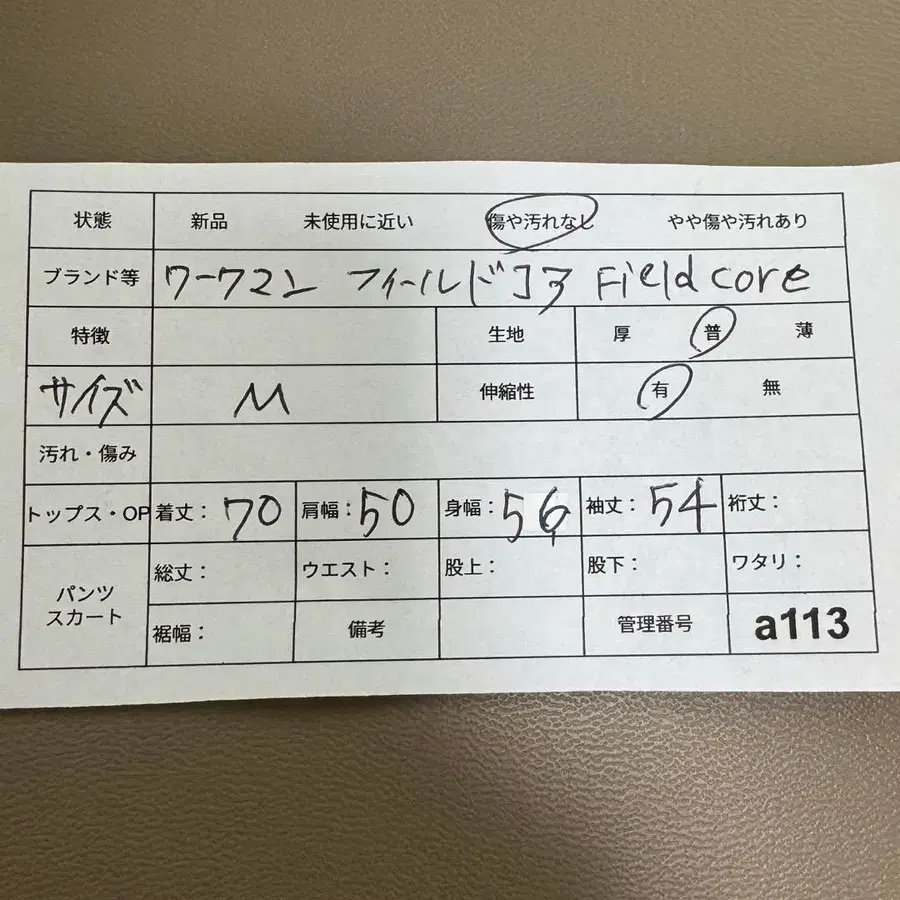 状態 新品 未使用に近い 傷や汚れなし やや傷や汚れあり
ブランド等 ワークマン フィールドコア Field core
特徴 生地 厚 普 薄
サイズ M 伸縮性 有 無
汚れ・傷み
トップス・OP 着丈：70 肩幅：50 身幅：56 袖丈：54 裄丈：
パンツ
スカート
総丈： ウエスト： 股上： 股下： ワタリ：
裾幅： 備考 管理番号 a113